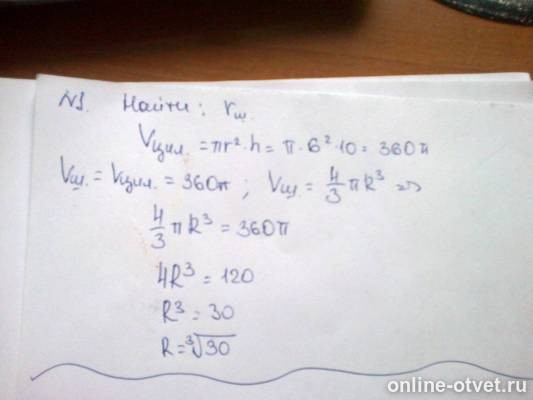 N1. Найти: rш.
Vцил. = πr²·h = π·6²·10 = 360π
Vш. = Vцил. = 360π ; Vш = 4/3 πR³ ⇒
4/3 πR³ = 360π
4R³ = 120
R³ = 30
R = ³√30
online-otvet.ru